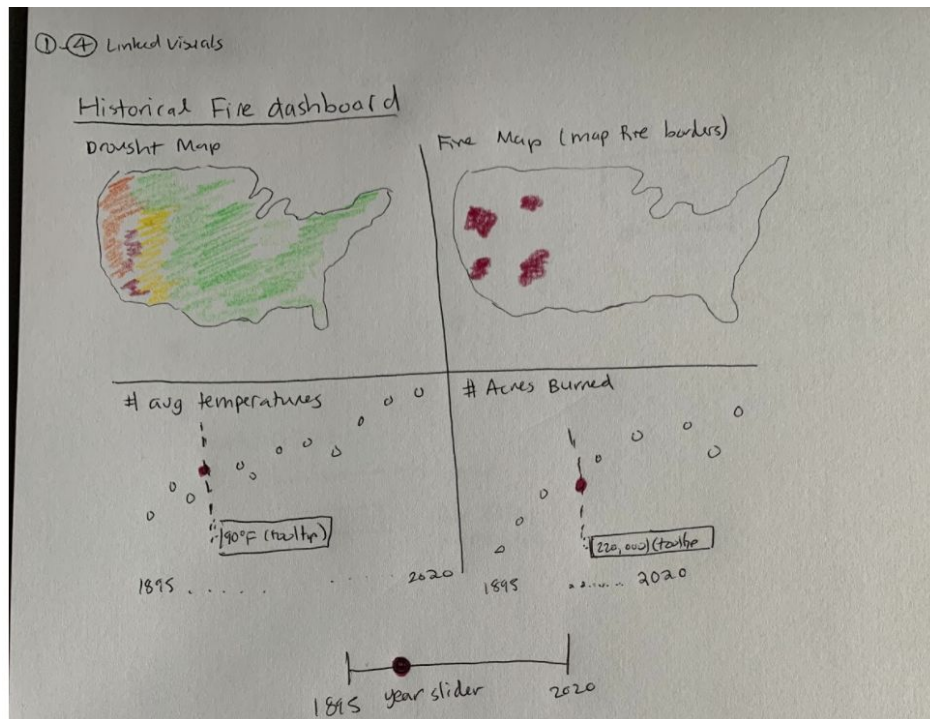 ① - ④ Linked visuals
Historical Fire dashboard
Drought Map
Fire Map (map fire borders)
# avg temperatures
90°F (tooltip)
1895 . . . . . . . . . . 2020
# Acres Burned
220,000 (tooltip
1895 . . . . . . . 2020
1895 year slider 2020